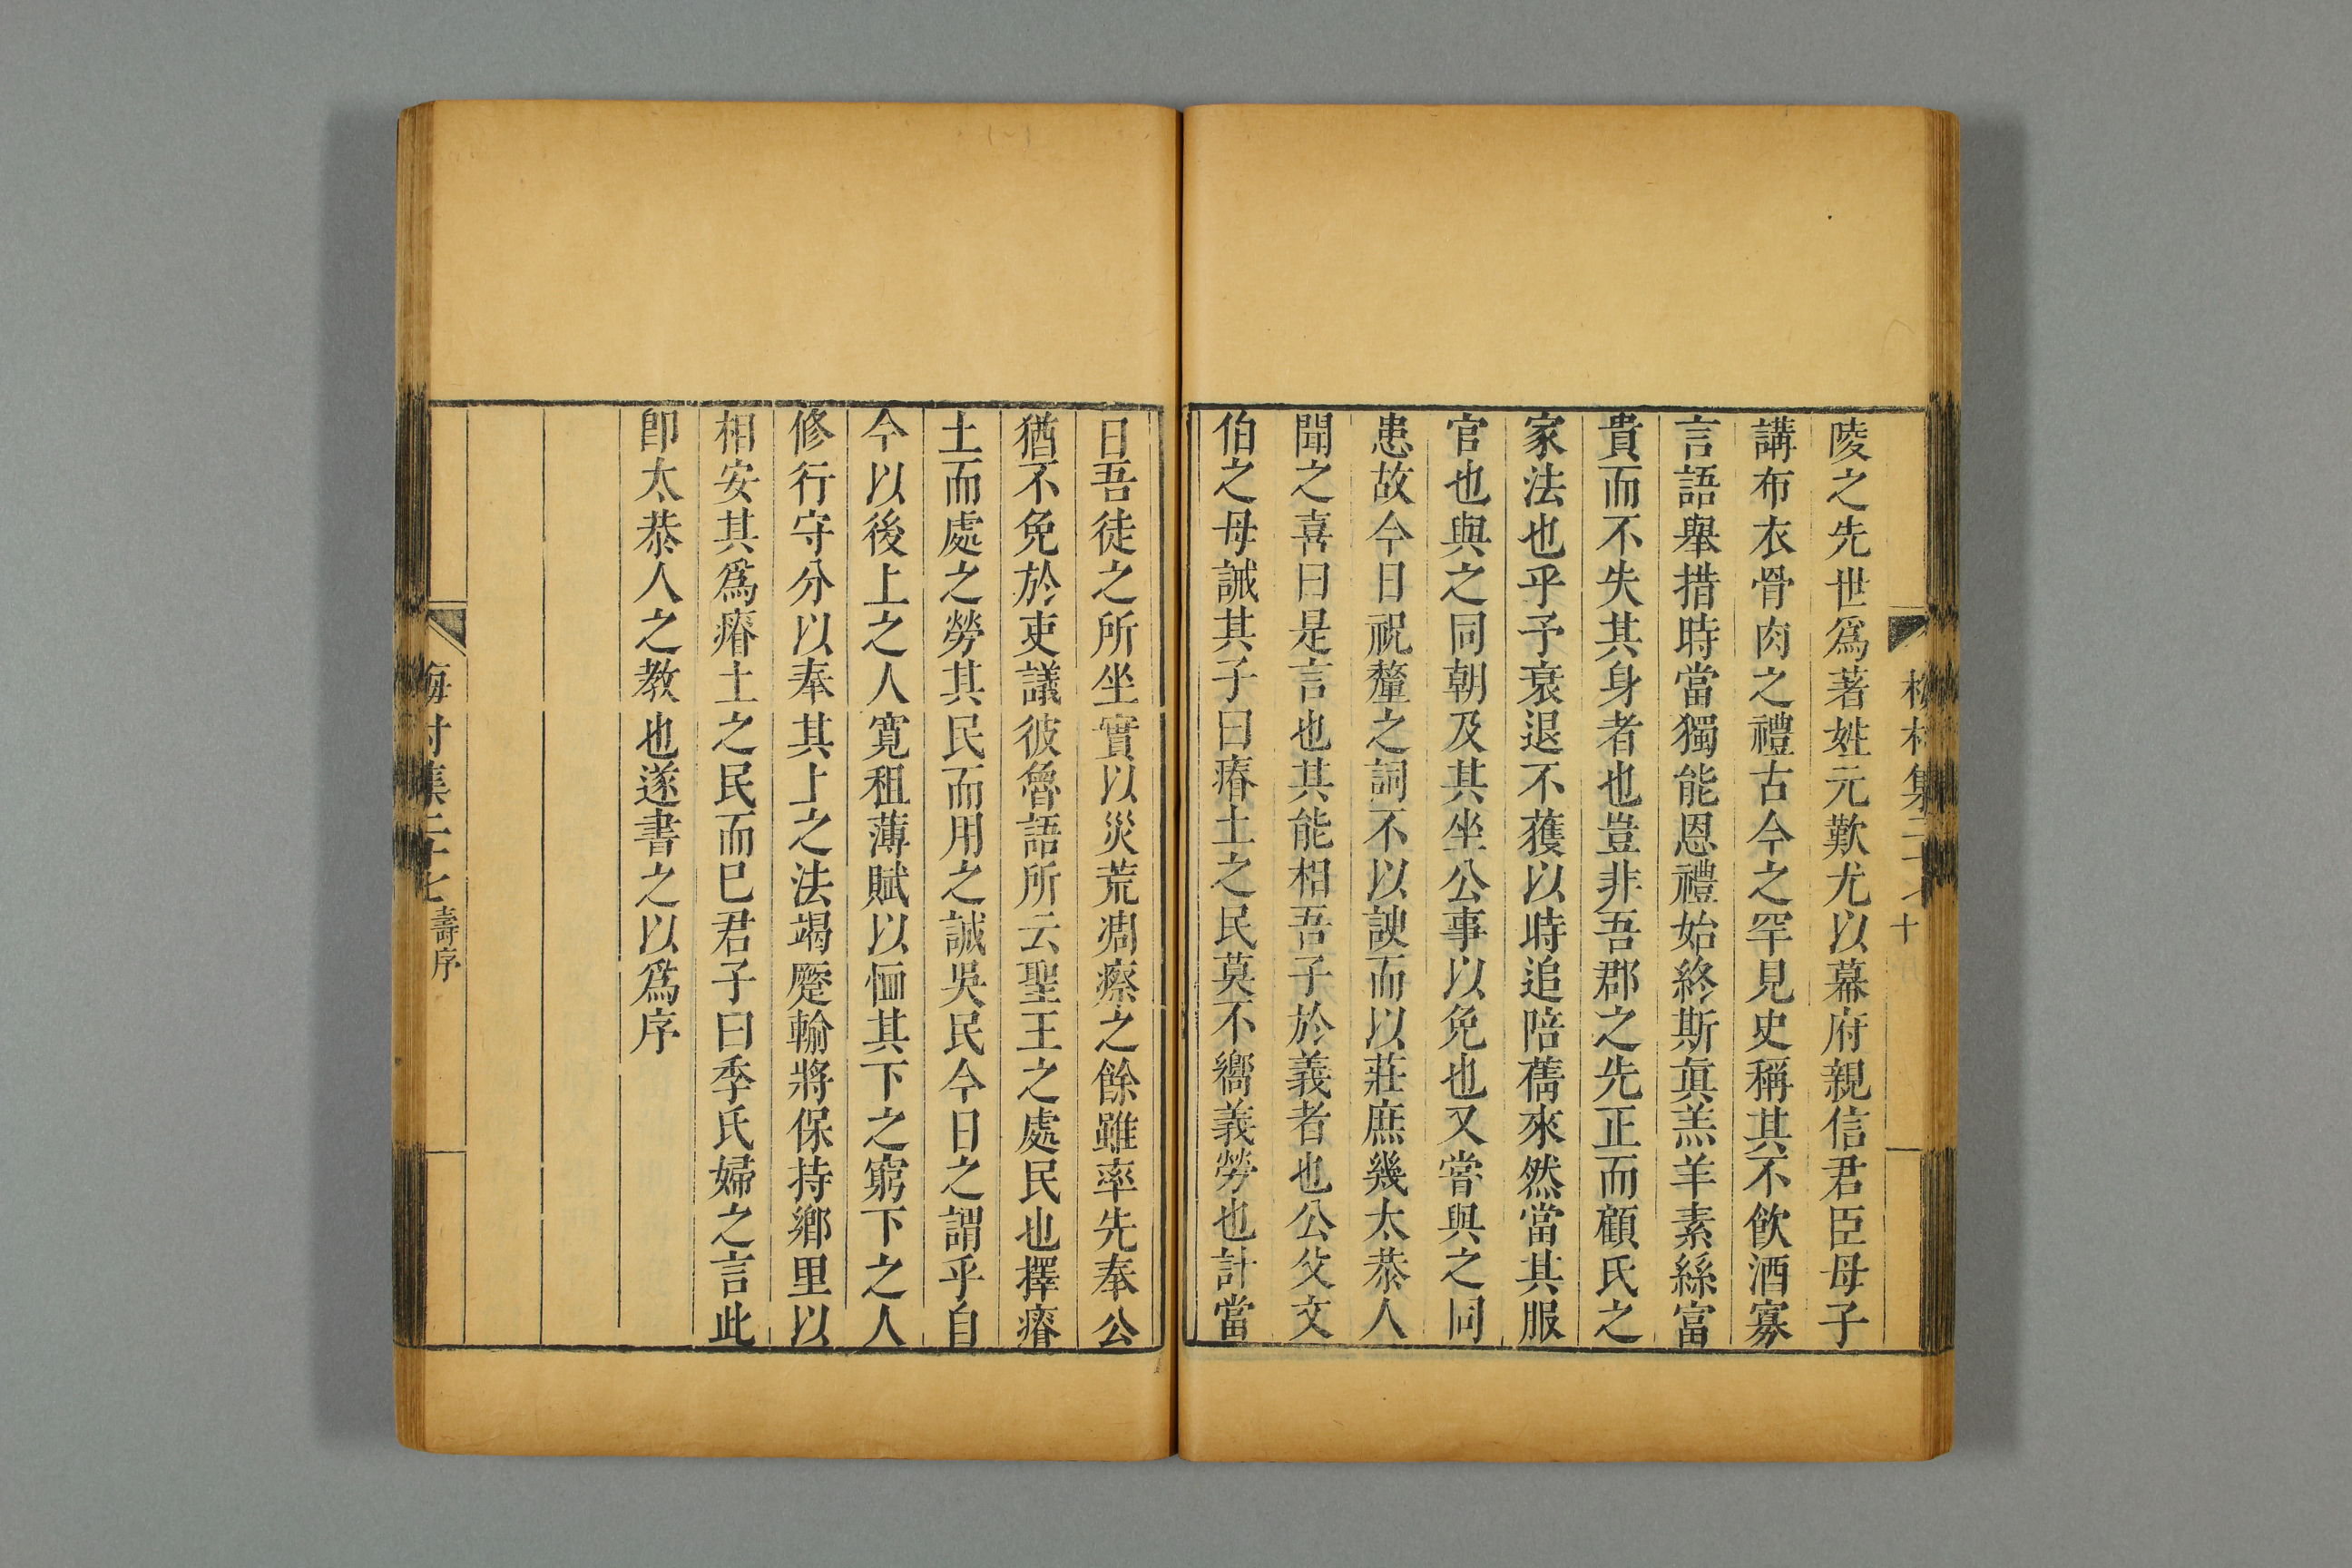 陵之先世爲著姓元歎尤以幕府親信君臣母子
講布衣骨肉之禮古今之罕見史稱其不飲酒寡
言語舉措時當獨能恩禮始終斯眞羔羊素絲富
貴而不失其身者也豈非吾郡之先正而顧氏之
家法也乎予衰退不獲以時追陪舊來然當其服
官也與之同朝及其坐公事以免也又嘗與之同
患故今日祝釐之詞不以諛而以莊庶幾太恭人
聞之喜曰是言也其能相吾子於義者也公父文
伯之母誡其子曰瘠土之民莫不嚮義勞也計當
日吾徒之所坐實以災荒凋瘵之餘雖率先奉公
猶不免於吏議彼魯語所云聖王之處民也擇瘠
土而處之勞其民而用之誠吳民今日之謂乎自
今以後上之人寬租薄賦以恤其下之窮下之人
修行守分以奉其上之法竭蹷輸將保持鄉里以
相安其爲瘠土之民而已君子曰季氏婦之言此
卽太恭人之教也遂書之以爲序
梅村集二十七 壽序
梅村集二十七 十